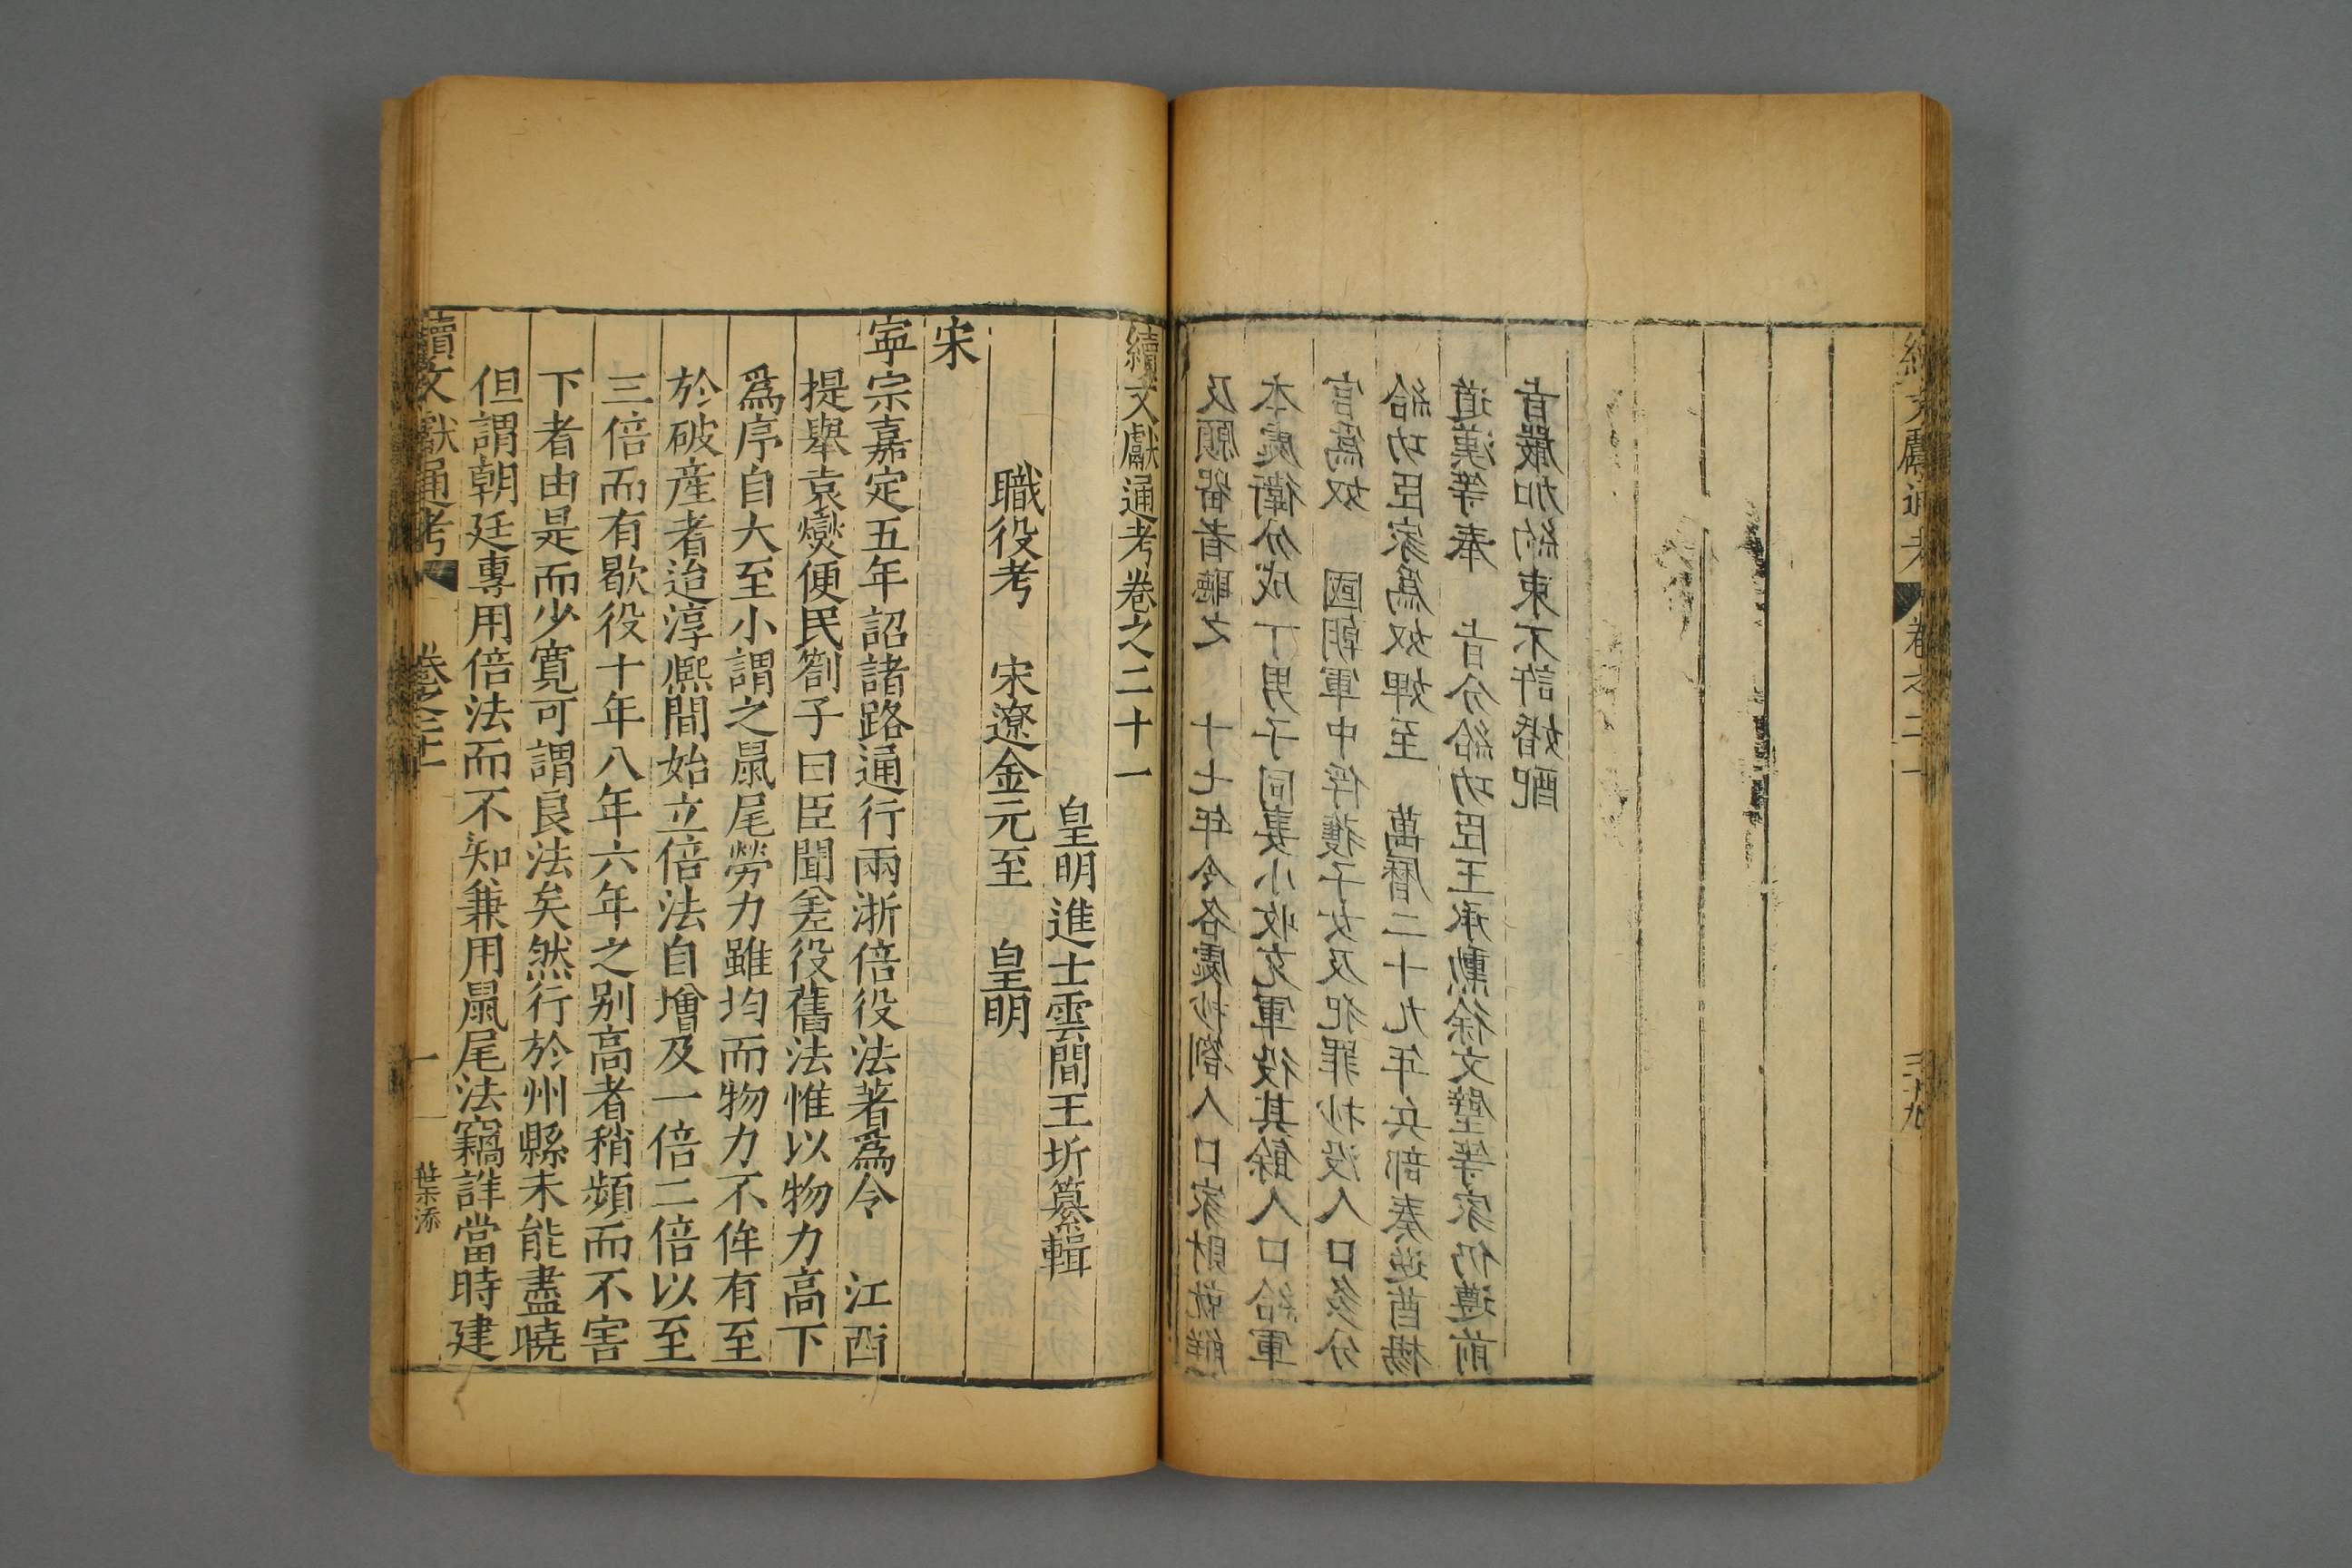 及願留者聽之 十七年令各處抄劄人口家財就解
本處衛分成丁男子同妻小收充軍役其餘人口給軍
官爲奴 國朝軍中俘獲子女及犯罪抄没人口多分
給功臣家爲奴婢至 萬曆二十九年兵部奏逆酋楊
道漢等奉 旨分給功臣王承勳徐文璧等家仍遵前
旨嚴加約束不許婚配
續文獻通考卷之二十一
皇明進士雲間王圻纂輯
職役考 宋遼金元至 皇明
宋
寧宗嘉定五年詔諸路通行兩浙倍役法著爲令 江西
提舉袁燮便民劄子曰臣聞差役舊法惟以物力高下
爲序自大至小謂之鼠尾勞力雖均而物力不侔有至
於破産者迨淳熈間始立倍法自增及一倍二倍以至
三倍而有歇役十年八年六年之别高者稍頻而不害
下者由是而少寬可謂良法矣然行於州縣未能盡曉
但謂朝廷專用倍法而不知兼用鼠尾法竊詳當時建
續文獻通考 卷之二十一 一 葉添